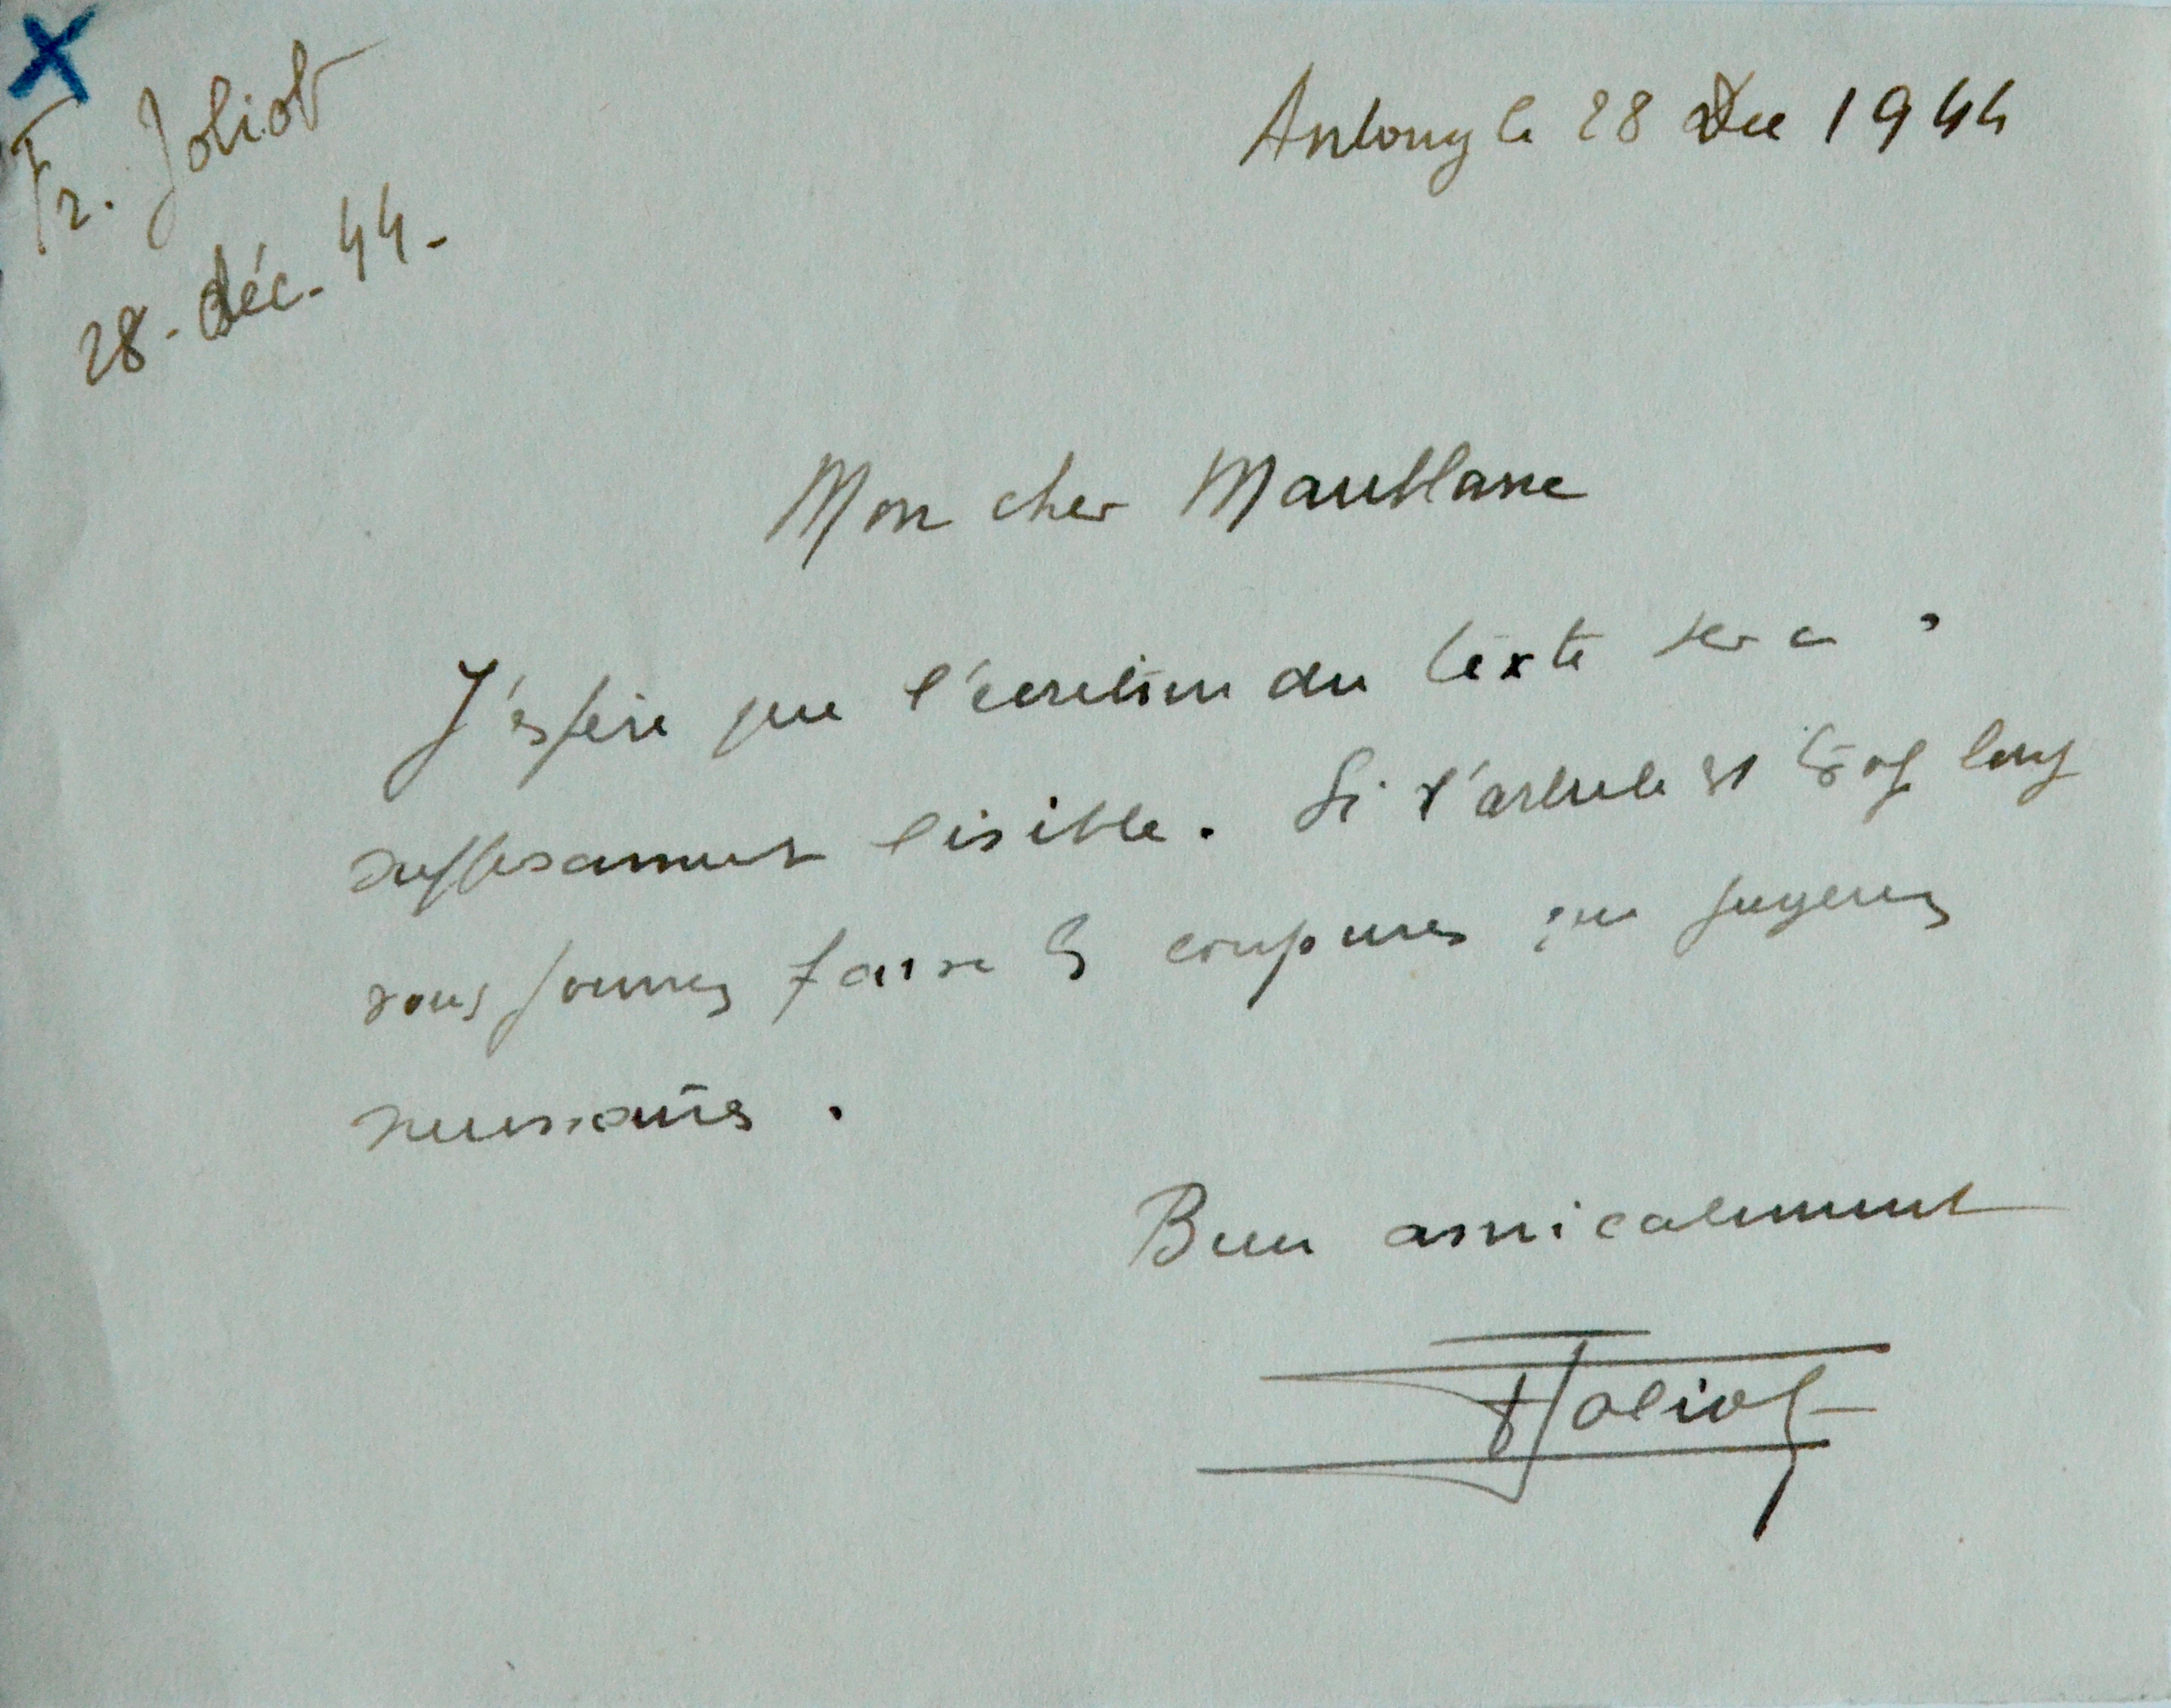 X
Fr. Joliot
28 - déc. 44 -
Antony le 28 Dec 1944
Mon cher Maublanc
J'espère que l'écriture du texte sera
suffisamment lisible. Si l'article est trop long
vous pourrez faire les coupures que jugerez
nécessaires.
Bien amicalement
F Joliot